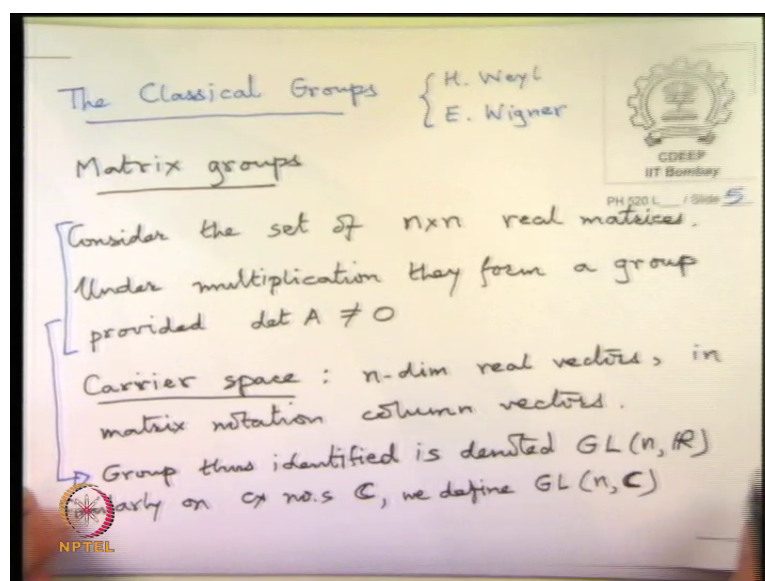 The Classical Groups { H. Weyl
E. Wigner
CDEEP
IIT Bombay
Matrix groups
PH 520 L / Slide 5
Consider the set of n×n real matrices.
Under multiplication they form a group
provided det A ≠ 0
Carrier space : n-dim real vectors, in
matrix notation column vectors.
Group thus identified is denoted GL(n, ℝ)
on cx no.s ℂ, we define GL(n, ℂ)
NPTEL